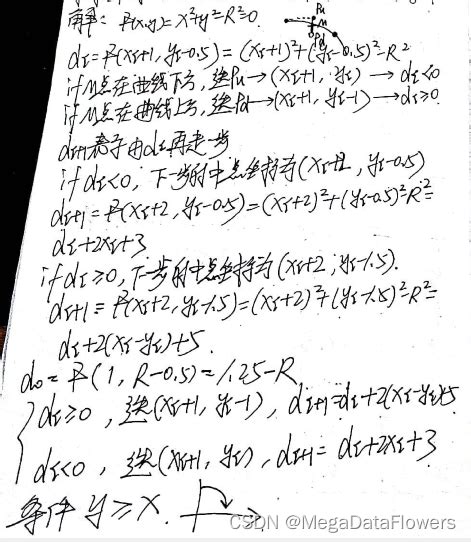 解: F(x,y)=x²+y²-R²=0.
Pu
M
Pd
di=F(xi+1, yi-0.5)=(xi+1)²+(yi-0.5)²-R²
if M点在曲线下方, 选Pu→(xi+1, yi) → di<0
if M点在曲线上方, 选Pd→(xi+1, yi-1)→di≥0.
di+1 由di再走一步
if di<0, 下一步的中点坐标为(xi+2, yi-0.5)
di+1=F(xi+2, yi-0.5)=(xi+2)²+(yi-0.5)²-R²=
di+2xi+3
if di≥0, 下一步的中点坐标为(xi+2, yi-1.5).
di+1=F(xi+2, yi-1.5)=(xi+2)²+(yi-1.5)²-R²=
di+2(xi-yi)+5.
d0=F(1, R-0.5)=1.25-R
di≥0, 选(xi+1, yi-1), di+1=di+2(xi-yi)+5
di<0, 选(xi+1, yi), di+1=di+2xi+3
条件 y≥x.
CSDN @MegaDataFlowers